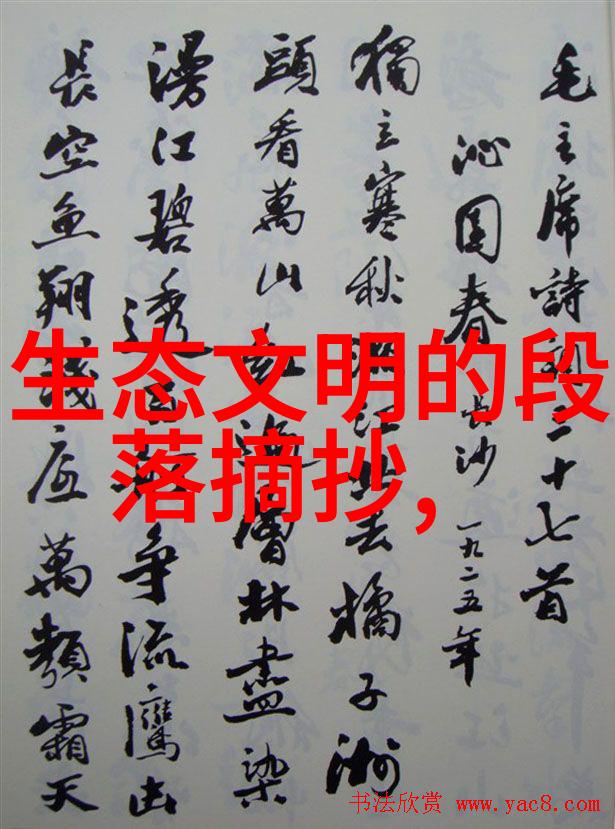 毛主席詩詞三十七首
沁園春 長沙 一九二五年
獨立寒秋湘江北去橘子洲
頭看萬山紅遍層林盡染
漫江碧透百舸爭流鷹击
長空魚翔淺底萬類霜天
生态文明的段
落摘抄,
书法欣赏 www.yac8.com